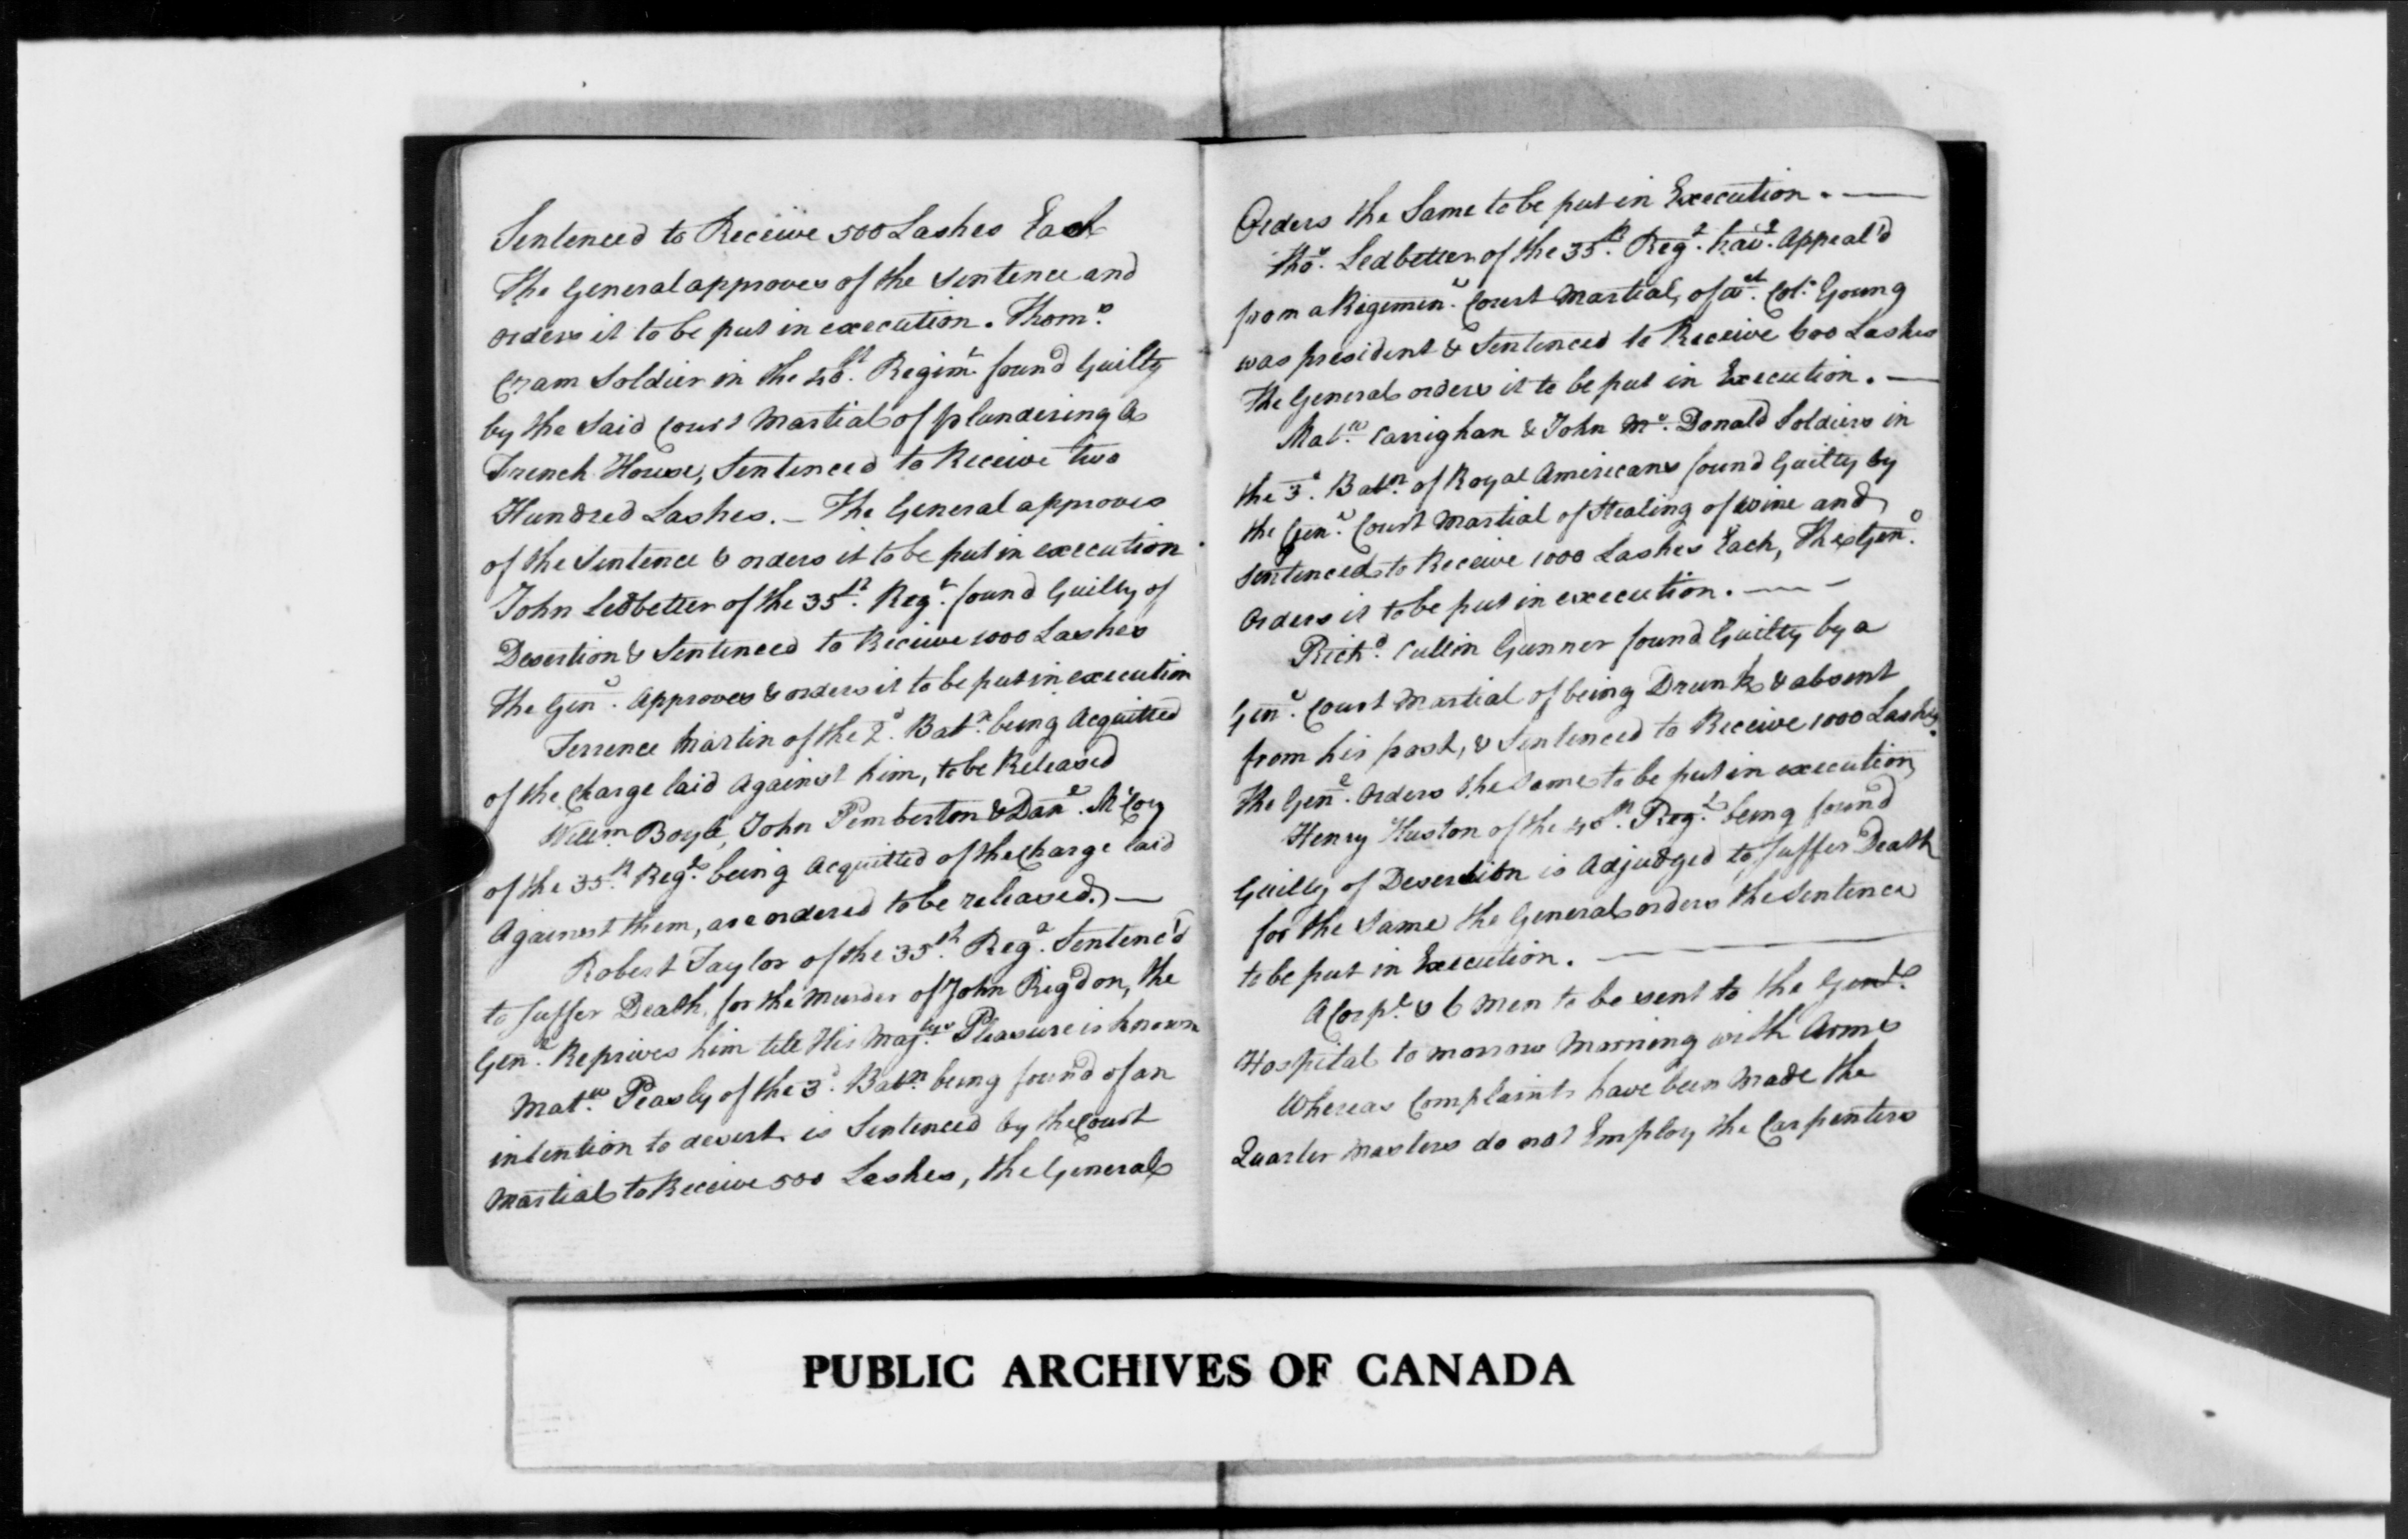 Sentenced to Receive 500 Lashes Each
The General approves of the Sentence and
orders it to be put in execution. Thoms.
Cram Soldier in the 48th. Regimt. found Guilty
by the Said Court Martial of plundering a
French House, Sentenced to Receive two
Hundred Lashes. — The General approves
of the Sentence & orders it to be put in execution.
John Ledbetter of the 35th. Regt. found Guilty of
Desertion & Sentenced to Receive 1000 Lashes
The Genl. Approves & orders it to be put in execution
Terrence Martin of the 2d. Batn. being Acquitted
of the Charge laid Against him, to be Released
Willm. Boyle, John Pemberton & Danl. McCoy
of the 35th. Regt. being Acquitted of the Charge laid
Against them, are ordered to be released. —
Robert Taylor of the 35th. Regt. Sentenc'd
to Suffer Death, for the Murder of John Rigdon, the
Genl. Reprives him till His Majtys. Pleasure is known
Matw. Peasly of the 3d. Batn. being found of an
intention to desert is Sentenced by the Court
Martial to Receive 500 Lashes, the General
Orders the Same to be put in Execution. —
Thos. Ledbetter of the 35th. Regt. havg. Appeal'd
from a Regimenl. Court Martial, of wch. Col. Young
was president & Sentenced to Receive 600 Lashes
The General orders it to be put in Execution. —
Matw. Carrighan & John Mc. Donald Soldiers in
the 3d. Batn. of Royal Americans found Guilty by
the Genl. Court Martial of Stealing of wine and
Sentenced to Receive 1000 Lashes Each, The Genl.
Orders it to be put in execution. — —
Richd. Cullin Gunner found Guilty by a
Genl. Court Martial of being Drunk & absent
from his post, & Sentenced to Receive 1000 Lashes.
The Genl. Orders the Same to be put in execution
Henry Huston of the 48th. Regt. being found
Guilty of Desertion is Adjudged to Suffer Death
for the Same the General orders the Sentence
to be put in Execution. —
A Corpl. & 6 Men to be sent to the Genl.
Hospital to morrow Morning with Arms
Whereas Complaints have been Made the
Quarter Masters do not Employ the Carpenters
PUBLIC ARCHIVES OF CANADA